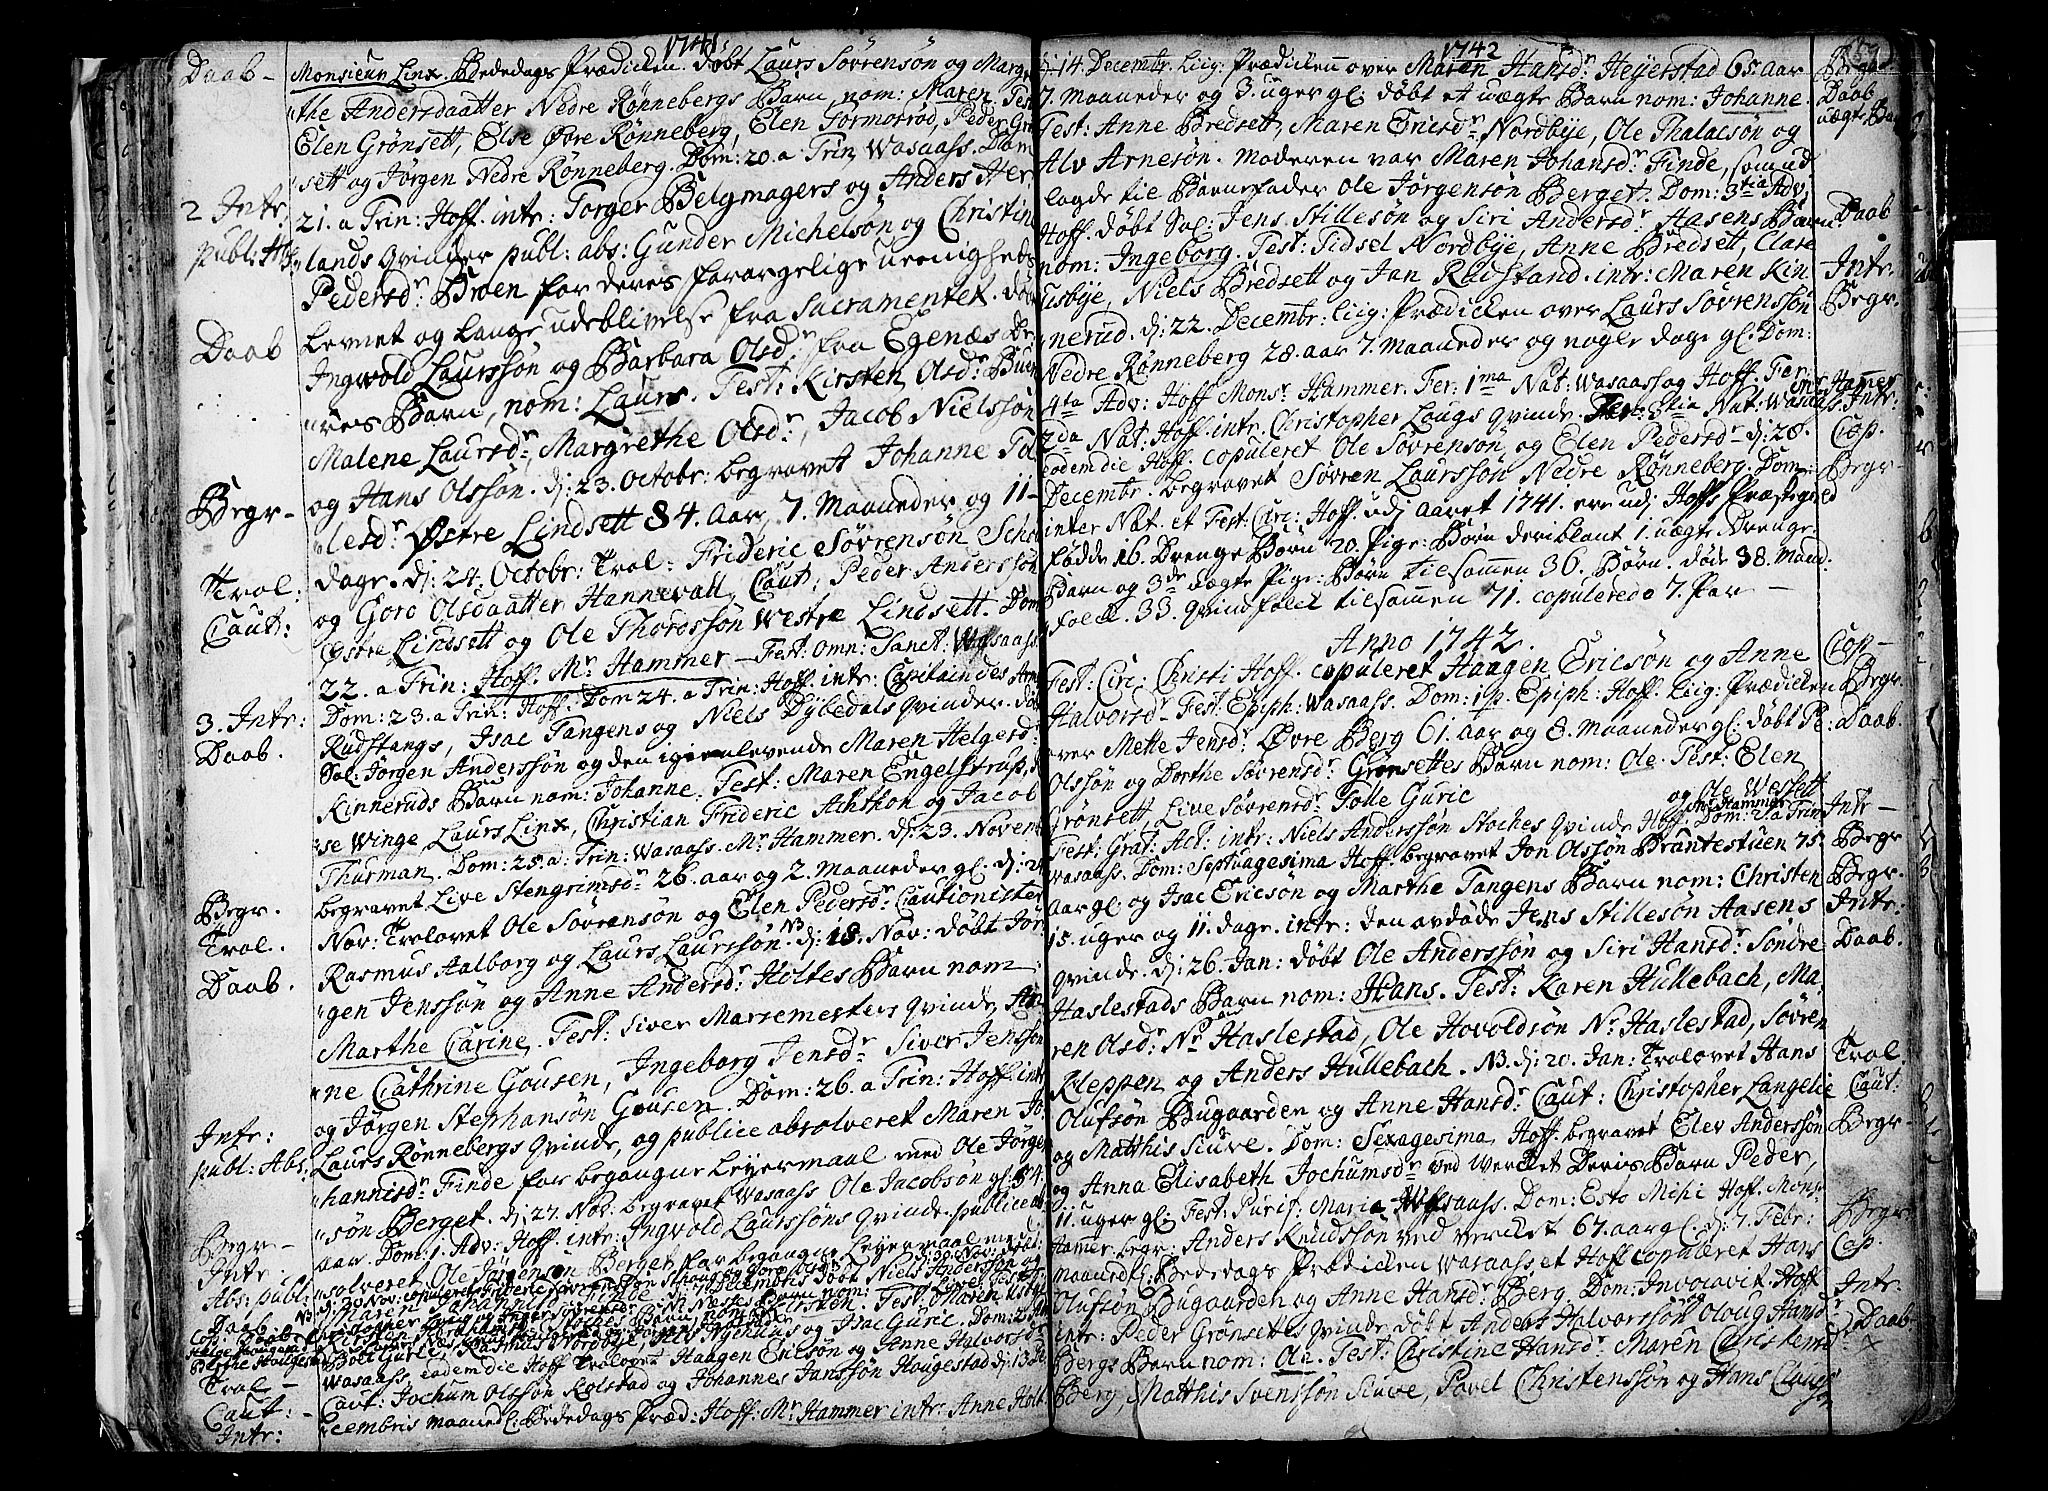 1741
Daab - Monsieur Linx. Bededags Prædicken. døbt Laurs Sørrensøn og Margre
the Andersdaatter Nedre Rønnebergs Barn, nom: Maren. Test:
Elen Grønsett, Else Øvre Rønneberg, Elen Tormosrød, Peder Grøn
sett og Jørgen Nedre Rønneberg. Dom: 20. a Trin: Wasaass. Dom
2 Intr. 21. a Trin: Hoff. intr: Torger Belgmagers og Anders Her
publ: Abs lands qvinder publ: abs: Gunder Michelsøn og Christin
Pedersdr. Broen for deres forargelige ueenigheds
levnet og lange udeblivelse fra Sacramentet. døbt
Daab Ingwold Laurssøn og Barbara Olsdr. fra Egenæs De
res Barn, nom: Laurs. Test: Kirsten Olsdr. Buer
Malene Laursdr. Margrethe Olsdr., Jacob Nielssøn
og Hans Olssøn. d: 23. Octobr: begravet Johanne Tol
Begr - lesdr. Østre Lindsett 84. Aar, 7. Maaneder og 11 -
dage. d: 24. Octobr: Trol: Frideric Sørrensøn Scho
Trol: og Goro Olsdaatter Hannevall, Caut: Peder Anderssøn
Caut: Østre Lindsett og Ole Thorossøn Westre Lindsett. Dom
22. a Trin: Hoff. Mr. Hammer - Fest: Omn: Sanct: Wasaass.
Dom: 23. a Trin: Hoff. Dom 24. a Trin: Hoff. intr: Capitaindes Arne
3. Intr: Rudstangs, Isac Tangens og Niels Dybedals qvinder. døbt
Daab. Sal: Jørgen Anderssøn og den igienlevende Maren Helgersdr
Kinneruds Barn nom: Johanne. Test: Maren Engelstrup,
se Winge, Laurs Linx, Christian Frideric Achthon og Jacob
Thurman. Dom: 25. a: Trin: Wasaass. Mr. Hammer. d: 23. Novem
Begr. begravet Live Stengrimsdr. 26. aar og 2. Maaneder gl. d: 24
Trol. Nov: Trolovet Ole Sørrensøn og Elen Pedersdr. Cautionister
Rasmus Aalborg og Laurs Laurssøn. NB. d: 18. Nov: døbt Jør
Daab. gen Jenssøn og Anne Andersdr. Holtes Barn nom
Marthe Carine. Test: Siver Marsemesters qvinde, An
ne Cathrine Gousen, Ingeborg Jensdr. Siver Jenssøn
og Jørgen Stephansøn Gousen. Dom: 26. a Trin: Hoff. intr
Intr: Laurs Rønnebergs qvinde, og publice absolveret Maren Jo
publ: Abs: hannisdr. Finde for begangne Leyermaal med Ole Jørgen
søn Berget. d: 27. Nov: begravet Wasaass Ole Jacobsøn gl: 84.
Begr - aar. Dom: 1. Adv: Hoff. intr: Ingvold Laurssøns qvinde. publice ab
Intr: solveret Ole Jørgensøn Berget for begangne Leyermaal med
Abs: publ: Maren Johannisdr. Finde. Decembris døbt Niels Anderssøn og
Daab
Trol - Wasaass. eodem die Hoff Trolovet Haagen Ericsøn og Anne Halvorsdr
Caut: - Caut: Jochum Olssøn Kolstad og Johannes Janssøn Hougestad d: 13 De
Intr: cembris maaned: Bededags Præd: Hoff: Mr. Hammer intr: Anne Holt
1742
d: 14. Decembr. Liig: Prædicken over Maren Hansdr. Heyerstad 65. aar Begr.
7. Maaneder og 3. uger gl: døbt et uægte Barn nom: Johanne. Daab
Test: Anne Bredsett, Maren Ericsdr. Nordbye, Ole Thalacsøn og uægte Barn
Alv Arnesøn. Moderen var Maren Johansdr. Finde, som ud
lagde til Barnefader Ole Jørgensøn Berget. Dom: 3tia Adv:
Hoff. døbt Sal: Jens Stillesøn og Siri Andersdr. Aasens Barn. Daab
nom: Ingeborg. Test: Sidsel Nordbye, Anne Bredsett, Clare
usbye, Niels Bredsett og Jan Raustand. intr: Maren Kin Intr:
nerud. d: 22. Decembr: Liig: Prædicken over Laurs Sørrenssøn Begr.
Nedre Rønneberg 28. aar 7. Maaneder og nogle dage gl. Dom:
4ta Adv: Hoff Monsr. Hammer. Fer: 1ma Nat: Wasaass og Hoff. Fer:
2da Nat: Hoff. intr. Christopher Lougs qvinde. Fer: 3tia Nat: Wasaass. Mr. Hamer Intr:
eodem die Hoff. copuleret Ole Sørrensøn og Elen Pedersdr. d: 28. Cop.
Decembr. begravet Sørren Laurssøn Nedre Rønneberg. Dom: Begr -
inter Nat. et Fest. Circ: Hoff. udj aaret 1741. ere udj Hoffs Præstegield
fødde 16. Drenge Børn 20. Pige: Børn deriblant 1. uægte Drenge
Barn og 3de uægte Pige: Børn tilsammen 36. Børn. døde 38. Mand:
folck. 33. qvindfolck tilsammen 71. copulerede 7. Par -
Anno 1742.
Fest: Circ: Christi Hoff. copuleret Haagen Ericsøn og Anne Cop -
Halvorsdr - Fest: Epiph: Wasaass. Dom: 1 p. Epiph: Hoff. Liig: Prædicken Begr.
over Mette Jensdr. Øvre Berg 61. aar og 8. maaneder gl: døbt Pe: Daab.
Olssøn og Dorthe Sørrensdr. Grønsettes Barn nom: Ole. Test: Elen
Grønsett, Live Sørrensdr. Tolle Guric og Ole Wessett
Fest: Grat: Act: intr: Niels Anderssøn Stoches qvinde Hoff. Mr. Hammer Dom: 2. a Trin Intr -
Wasaass. Dom: Septuagesima Hoff. begravet Jon Olssøn Brantestuen 75. Begr
Aar gl: og Isac Ericsøn og Marthe Tangens Barn nom: Christen Begr.
15. uger og 11. dage. intr: den avdøde Jens Stillesøn Aasens Intr:
qvinde. d: 26. Jan: døbt Ole Anderssøn og Siri Hansdr. Søndre Daab.
Haslestads Barn nom: Hans. Test: Karen Hullebach, Ma
ren Olsdr. Nr. Haslestad, Ole Hovoldsøn Nr. Haslestad, Sørren
Kleppen og Anders Hullebach. NB. d: 20. Jan: Trolovet Hans Trol.
Olufsøn Bugaarden og Anne Hansdr. Caut: Christopher Langelie Caut:
og Matthis Siuve. Dom: Sexagesima, Hoff: begravet Elev Anderssøn Begr -
og Anna Elisabeth Jochumsdr. ved Wercket Deris Barn Peder,
11. uger gl: Fest: Purif: Mariæ Wasaass. Dom: Esto Mihi Hoff. Mons.
Hammer. begr: Anders Knudssøn ved vercket 67. aar gl: d: 7. Febr: Begr.
Maaned: Bededags Prædicken Wasaass. et Hoff copuleret Hans Cop.
Olufsøn Bugaarden og Anne Hansdr. Berg. Dom: Invocavit. Hoff
intr: Peder Grønsettes qvinde. døbt Anders Halvorssøn og Oloug Hansdr Intr
Bergs Barn nom: Ole. Test: Christine Hansdr. Maren Christensdr Daab
Berg, Matthis Svenssøn Siuve, Povel Christenssøn og Hans Claus
søn